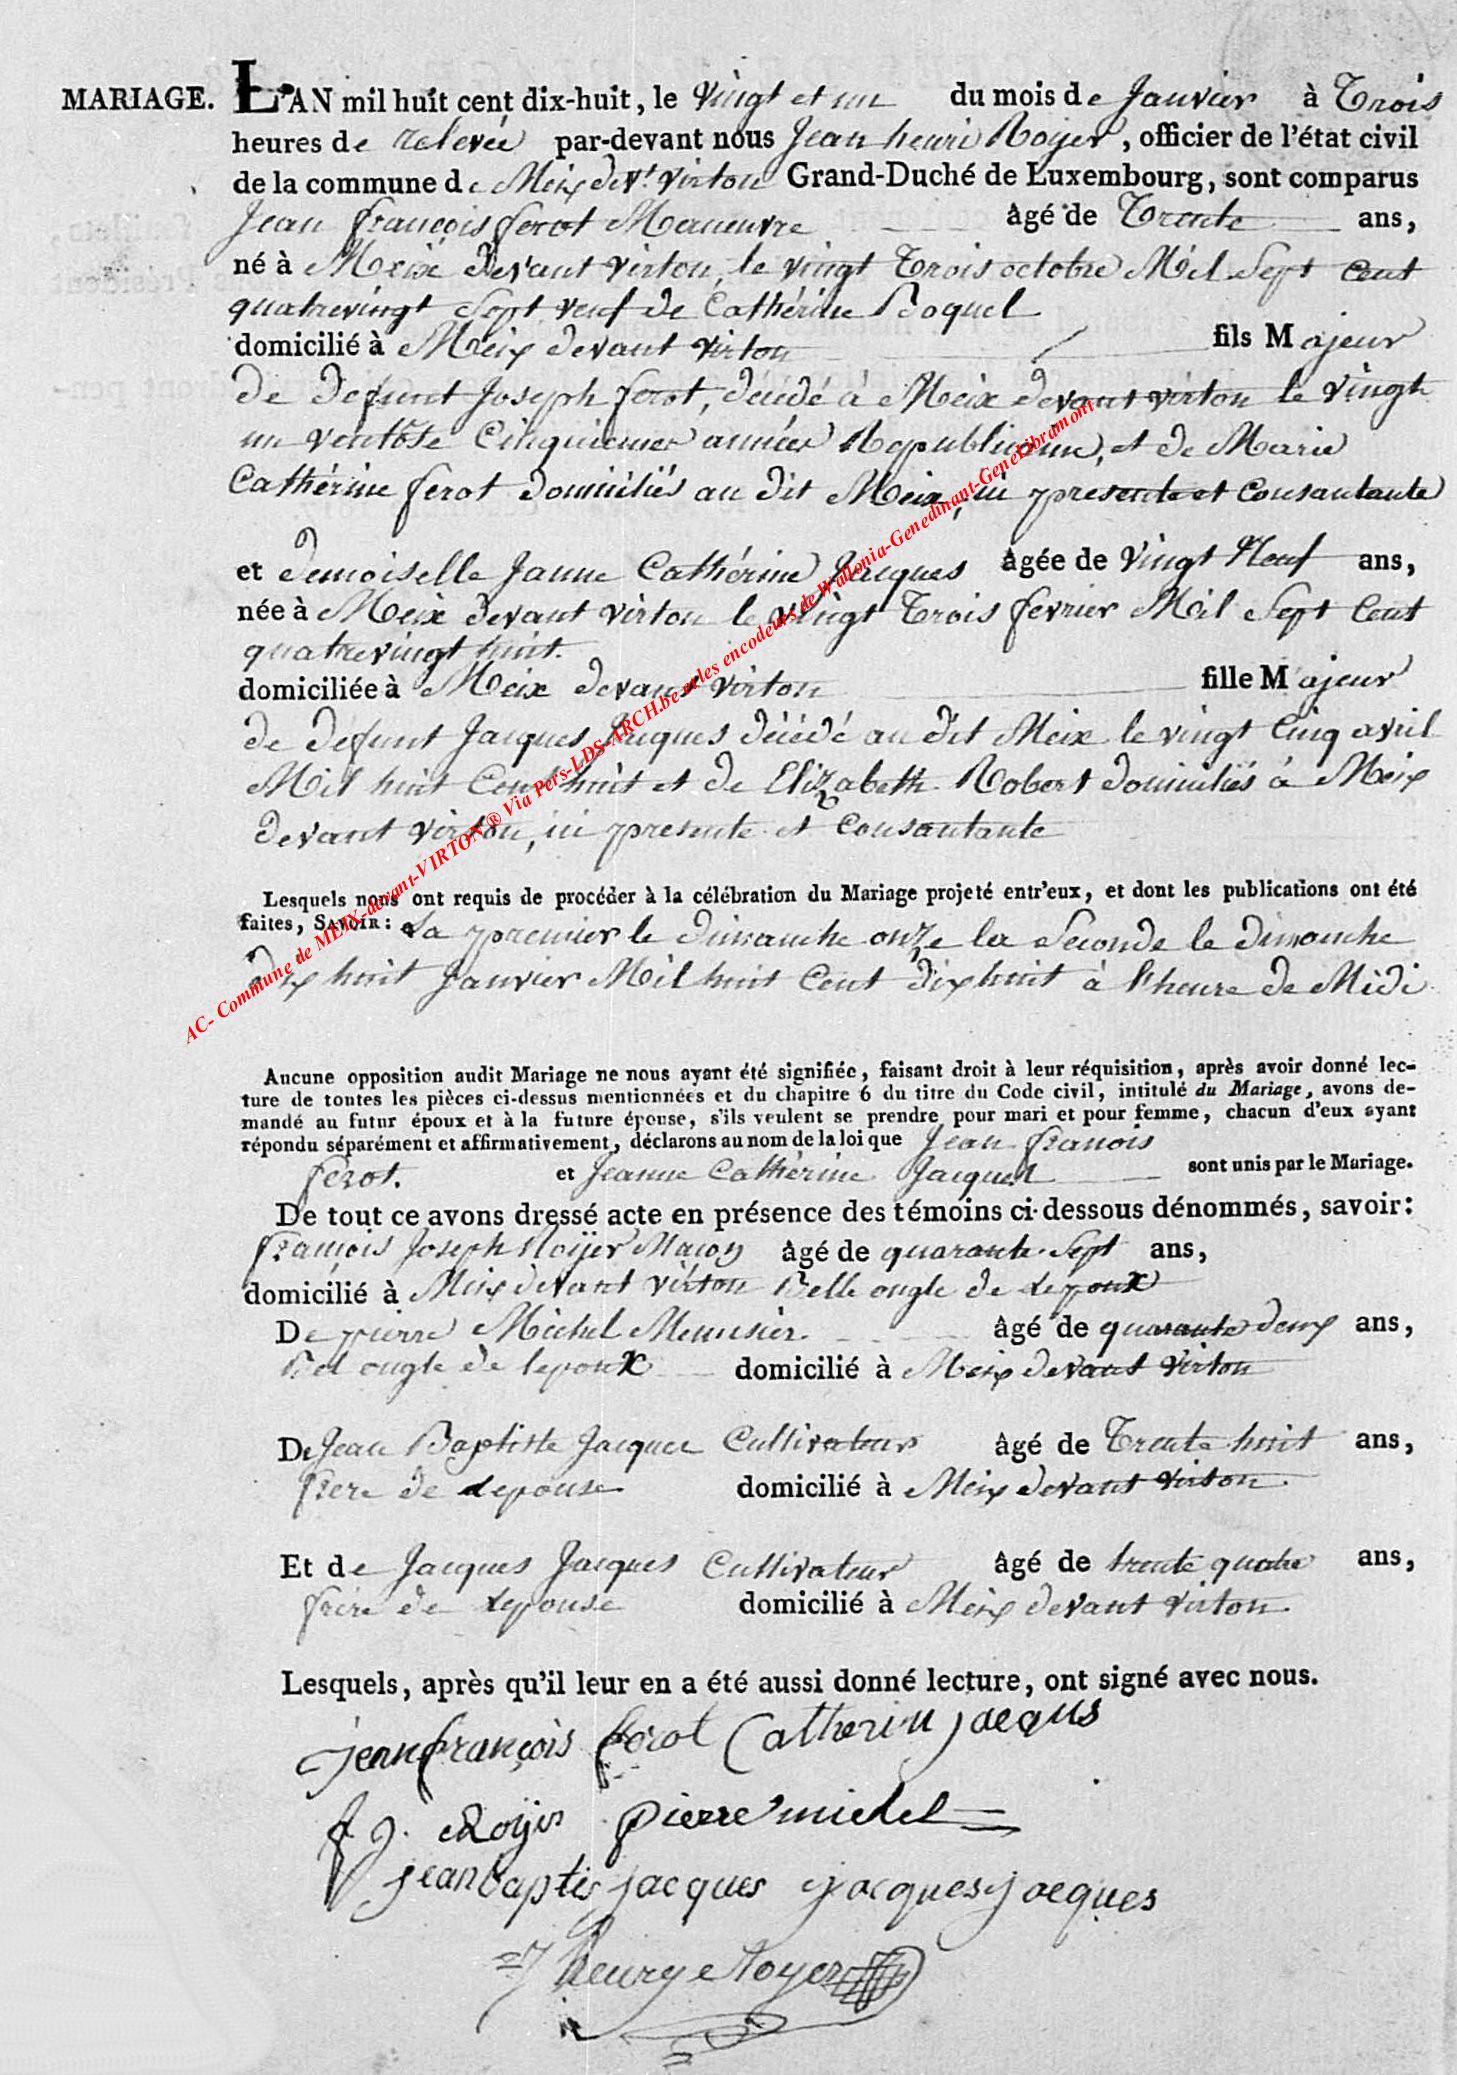 MARIAGE. L'AN mil huit cent dix-huit, le vingt et un du mois de Janvier à Trois
heures de relevée par-devant nous Jean henri Royer, officier de l'état civil
de la commune de Meix devt. virton Grand-Duché de Luxembourg, sont comparus
Jean françois ferot Maneuvre âgé de Trente ans,
né à Meix devant virton, le vingt Trois octobre Mil Sept Cent
quatrevingt Sept veuf de Cathérine Roquel
domicilié à Meix devant virton fils Majeur
de defunt Joseph ferot, décédé à Meix devant virton le vingt
un ventôse Cinquiemer année Republicaine, et de Marie
Cathérine ferot domiciliés au dit Meix, ici presente et Consantante
et demoiselle Janne Cathérine Jacques âgée de vingt Neuf ans,
née à Meix devant virton le vingt Trois fevrier Mil Sept Cent
quatrevingt huit.
domiciliée à Meix devant virton fille Majeur
de défunt Jacques Jacques décédé au dit Meix le vingt Cinq avril
Mil huit Cent huit et de Elizabeth Robert domiciliés à Meix
devant virton, ici presente et Consantante
Lesquels nous ont requis de procéder à la célébration du Mariage projeté entr'eux, et dont les publications ont été
faites, SAVOIR: La premier le dimanche onze la Seconde le dimanche
dix huit Janvier Mil huit Cent dix huit à l'heure de Midi
Aucune opposition audit Mariage ne nous ayant été signifiée, faisant droit à leur réquisition, après avoir donné lec-
ture de toutes les pièces ci-dessus mentionnées et du chapitre 6 du titre du Code civil, intitulé du Mariage, avons de-
mandé au futur époux et à la future épouse, s'ils veulent se prendre pour mari et pour femme, chacun d'eux ayant
répondu séparément et affirmativement, déclarons au nom de la loi que Jean franois
ferot. et Jeanne Cathérine Jacques sont unis par le Mariage.
De tout ce avons dressé acte en présence des témoins ci-dessous dénommés, savoir:
françois Joseph Roijer Maçon âgé de quarante Sept ans,
domicilié à Meix devant virton Belle ongle de Lepoux
De pierre Michel Menusier âgé de quarante deux ans,
Bel ongle de lepoux domicilié à Meix devant virton
De Jean Baptiste Jacques Cultivateur âgé de Trente huit ans,
frere de Lepouse domicilié à Meix devant virton.
Et de Jacques Jacques Cultivateur âgé de trente quatre ans,
frere de Lepouse domicilié à Meix devant virton.
Lesquels, après qu'il leur en a été aussi donné lecture, ont signé avec nous.
jean françois ferot Catherin jacqus
f j. Roijer pierre michel
jean baptis jacques jacques jacques
J henry Royer
AC- Commune de MEIX-devant-VIRTON® Via Pers-LDS-ARCH.be et les encodeurs de Wallonia-Genedinant-GeneLibramont